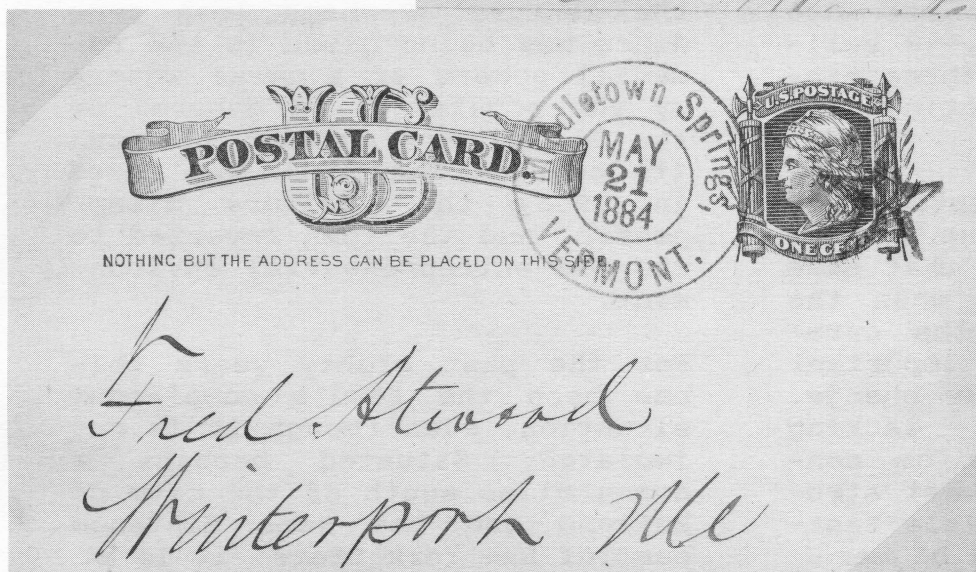 US
POSTAL CARD.
NOTHING BUT THE ADDRESS CAN BE PLACED ON THIS SIDE.
Middletown Springs,
MAY
21
1884
VERMONT.
U.S. POSTAGE
ONE CENT
Fred Atwood
Winterport Me